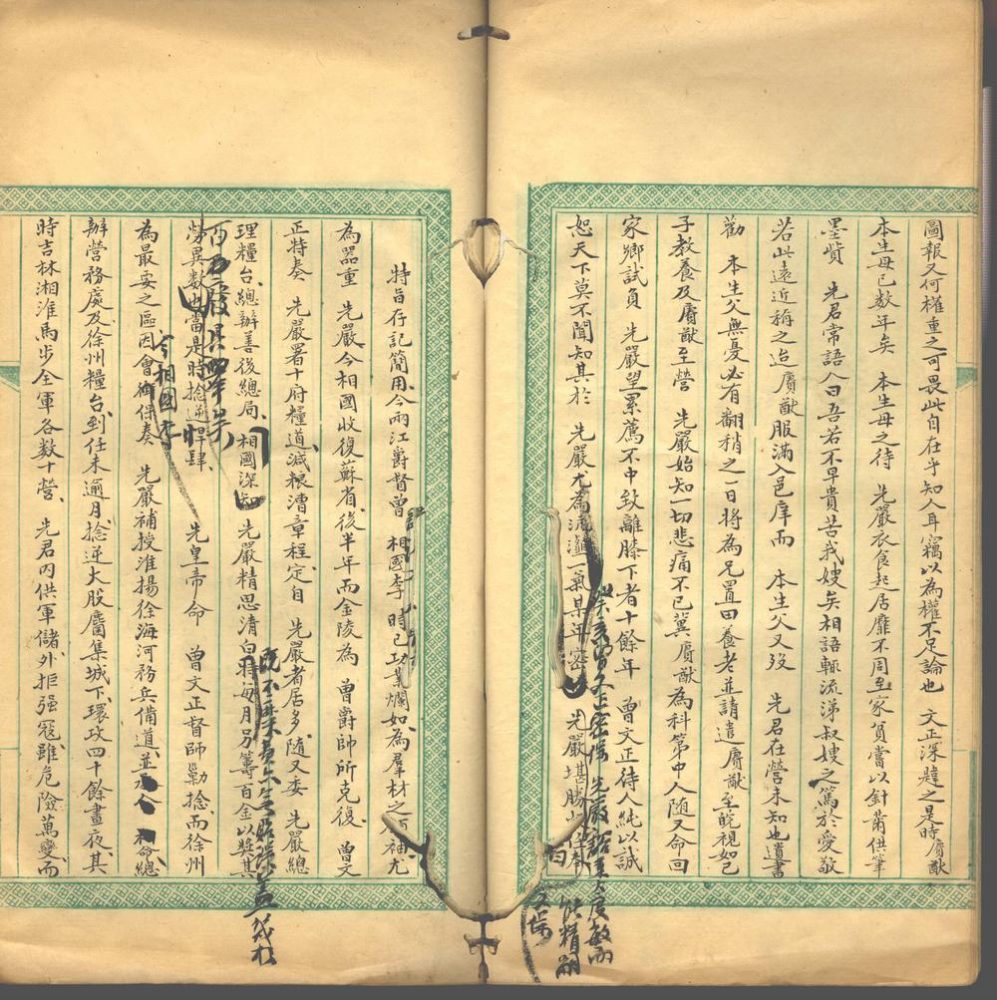 圖報又何權重之可畏此自在乎知人耳竊以為權不足論也　文正深韙之是時賡猷
本生母已數年矣　本生母之待　先嚴衣食起居靡不周至家貧嘗以針黹供筆
墨貲　先君常語人曰吾若不早貴苦我嫂矣相語輒流涕叔嫂之篤於愛敬
若此遠近稱之迨賡猷服滿入邑庠而　本生父又歿　先君在營未知也遺書
勸　本生父無憂必有翻稍之一日將為兄置田養老並請遣賡猷至皖視如己
子教養及賡猷至營　先嚴始知一切悲痛不已冀賡猷為科第中人隨又命回
家鄉試負　先嚴望累薦不中致離膝下者十餘年　曾文正待人純以誠
恕天下莫不聞知其於　先嚴尤為流瀣一氣某年密　先嚴堪勝
特旨存記簡用今兩江爵督曾　相國李　時已功業爛如為羣材之領袖尤
為器重　先嚴今相國收復蘇省後半年而金陵為　曾爵帥所克復　曾文
正特奏　先嚴署十府糧道減粮漕章程定自　先嚴者居多隨又委　先嚴總
理糧台總辦善後總局　相國深知　先嚴精思清白將每月另籌百金以獎其
勞異數也當是時捻逆肆　先皇帝命　曾文正督師勦捻而徐州
為最要之區因會銜保奏　先嚴補授淮揚徐海河務兵備道並命總
辦營務處及徐州糧台到任未逾月捻逆大股麕集城下環攻四十餘晝夜其
時吉林湘淮馬步全軍各數十營　先君內供軍儲外拒强寇雖危險萬變而